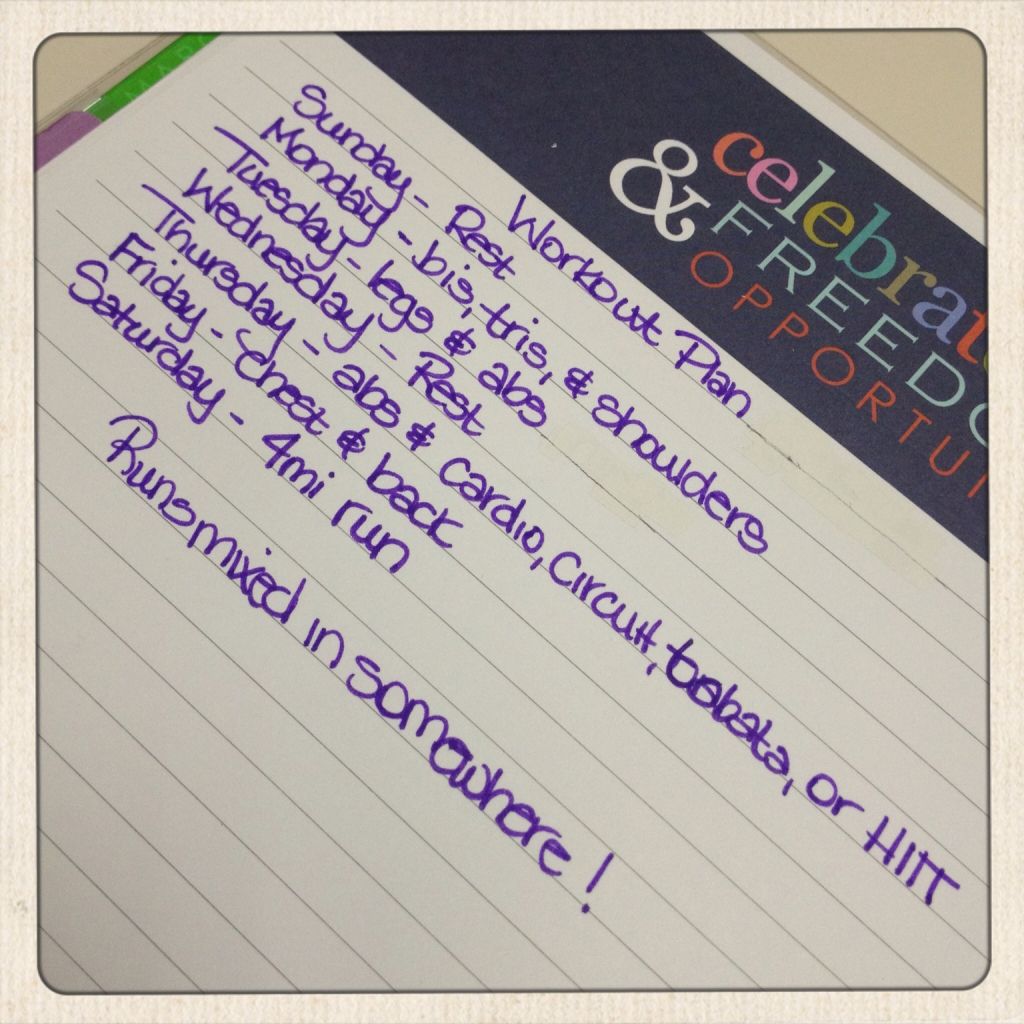 MAR
celebrat
& FREEDO
OPPORTUN
Workout Plan
Sunday - Rest
Monday - bis, tris, & shoulders
Tuesday - legs & abs
Wednesday - Rest
Thursday - abs & cardio, circuit, tabata, or HIIT
Friday - Chest & back
Saturday - 4mi run
Runs mixed in somewhere!